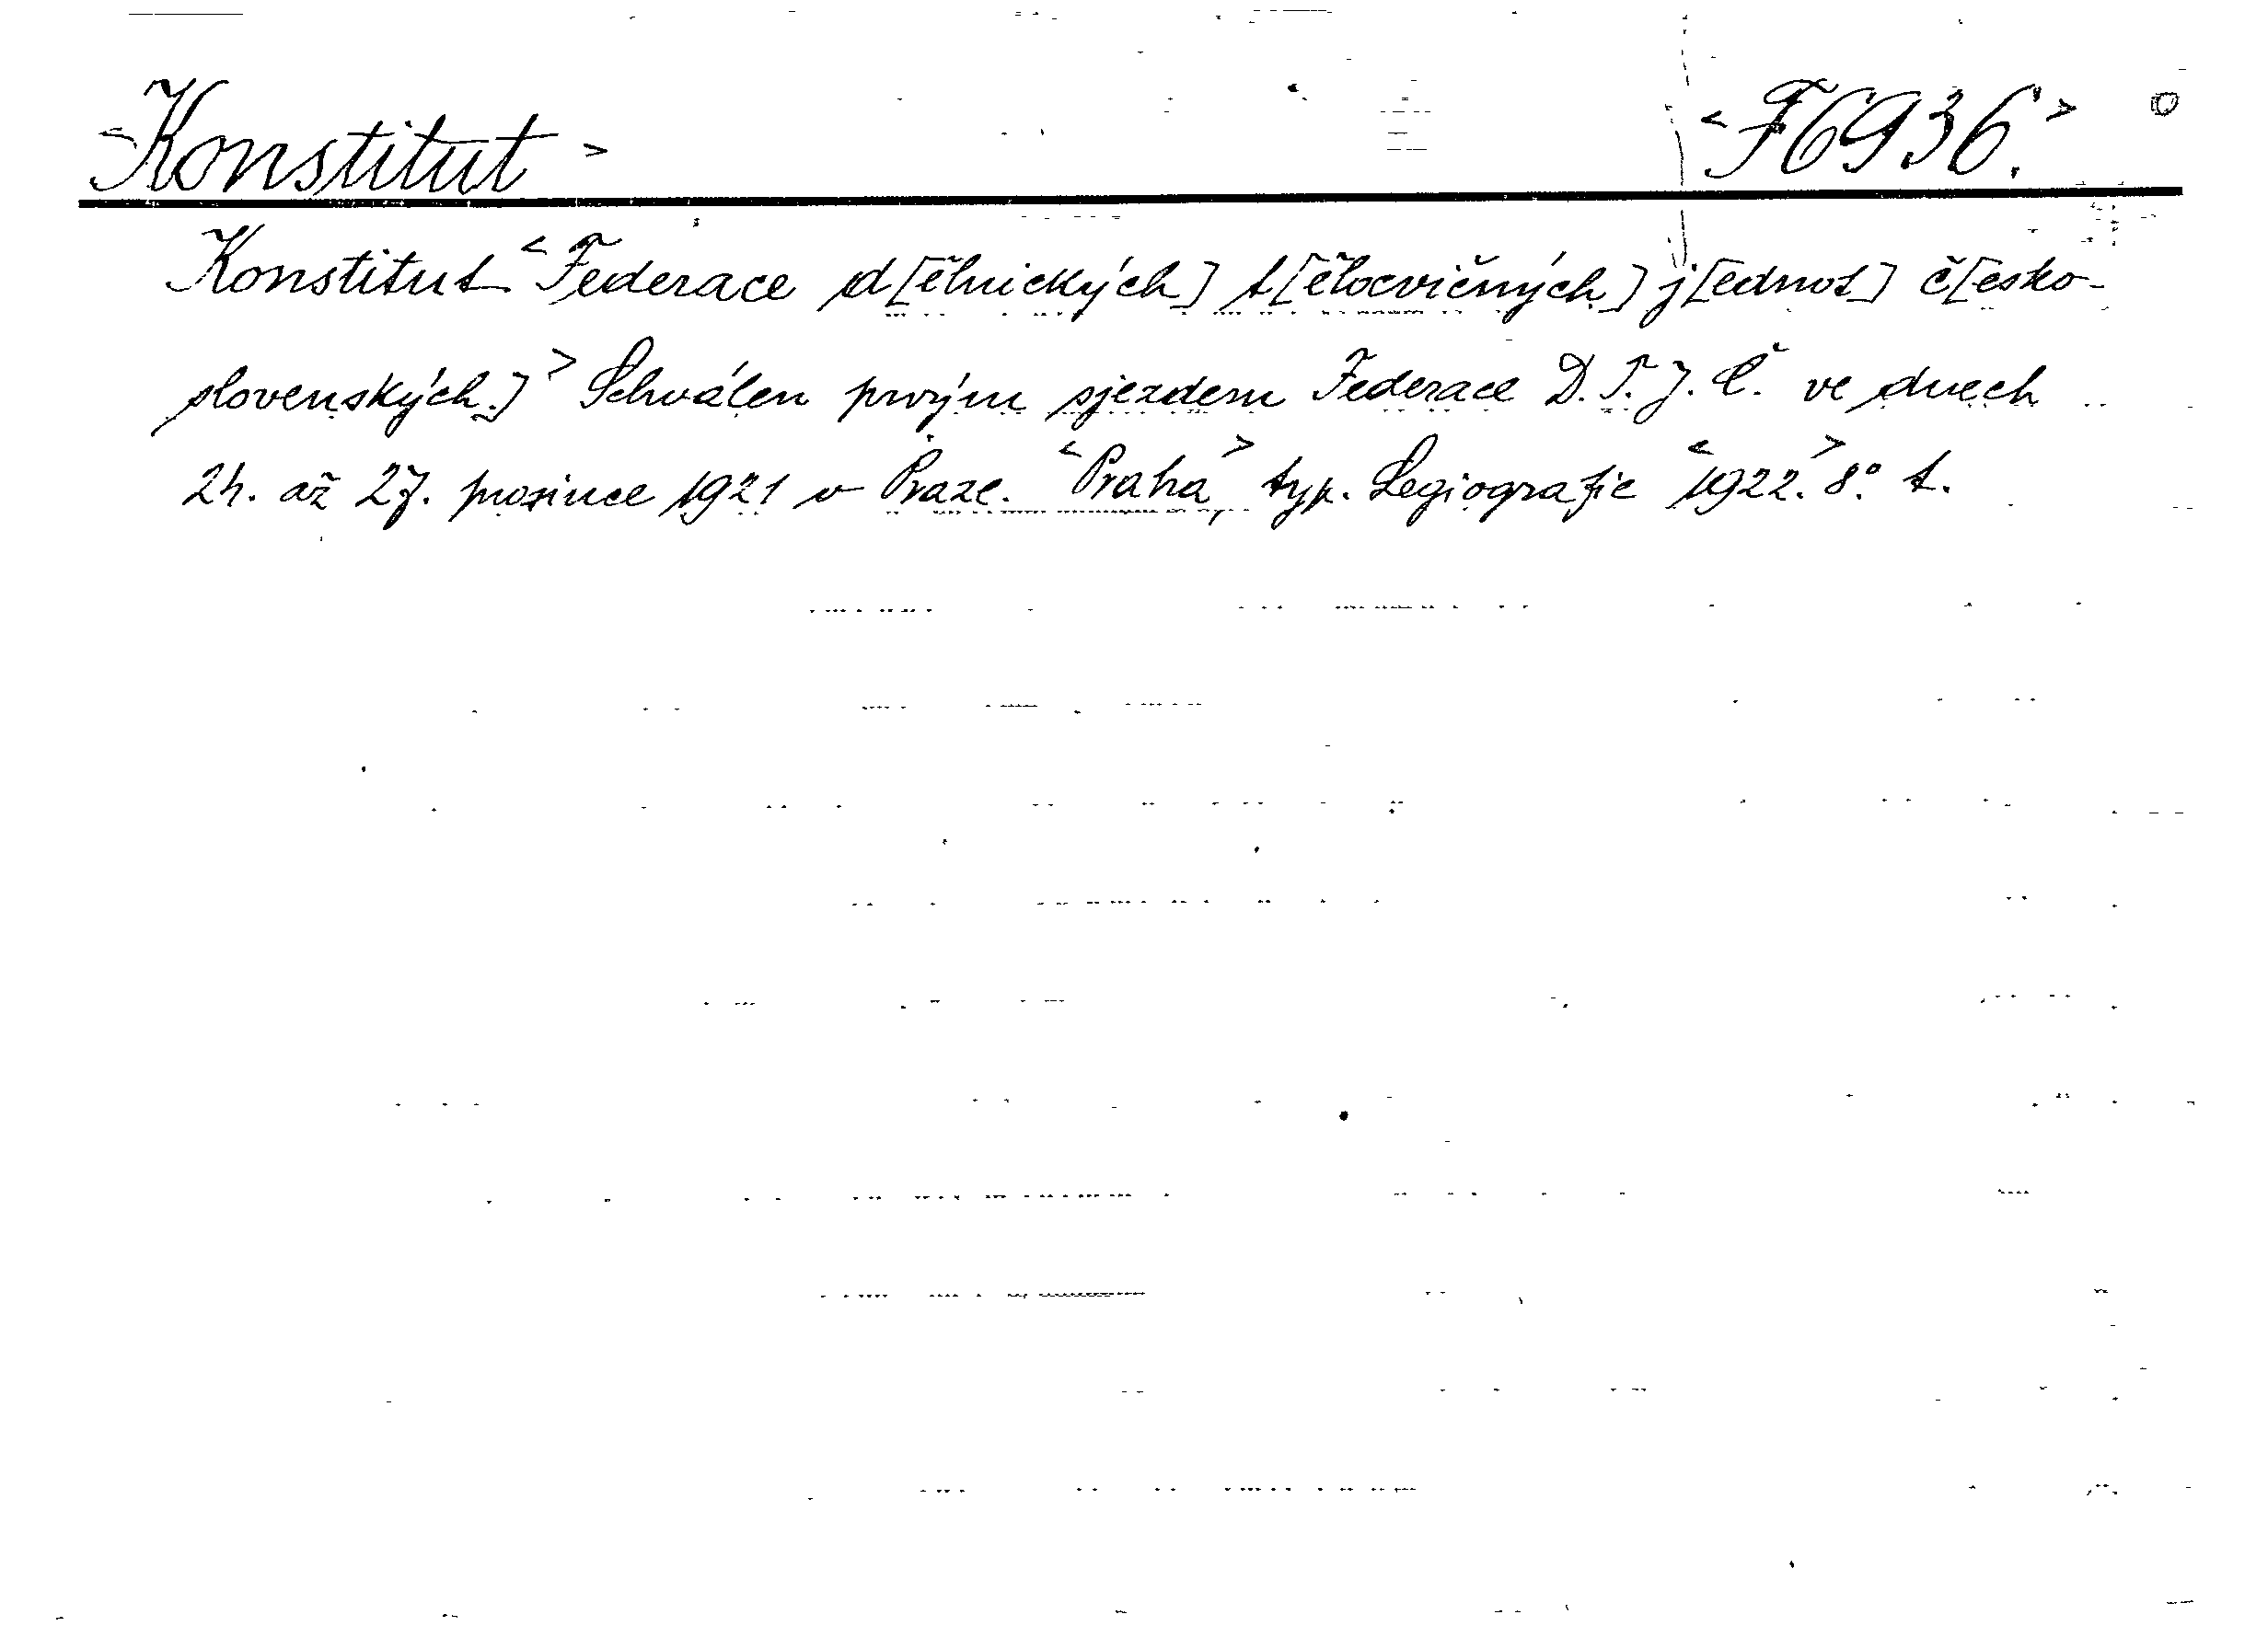 <Konstitut> <F6936.>
Konstitut <Federace d[ělnických] t[ělocvičných] j[ednot] č[esko-
slovenských.]> Schválen prvým sjezdem Federace D.T.J.Č. ve dnech
24. až 27. prosince 1921 v Praze. <Praha>, typ. Legiografie <1922.> 8° t.